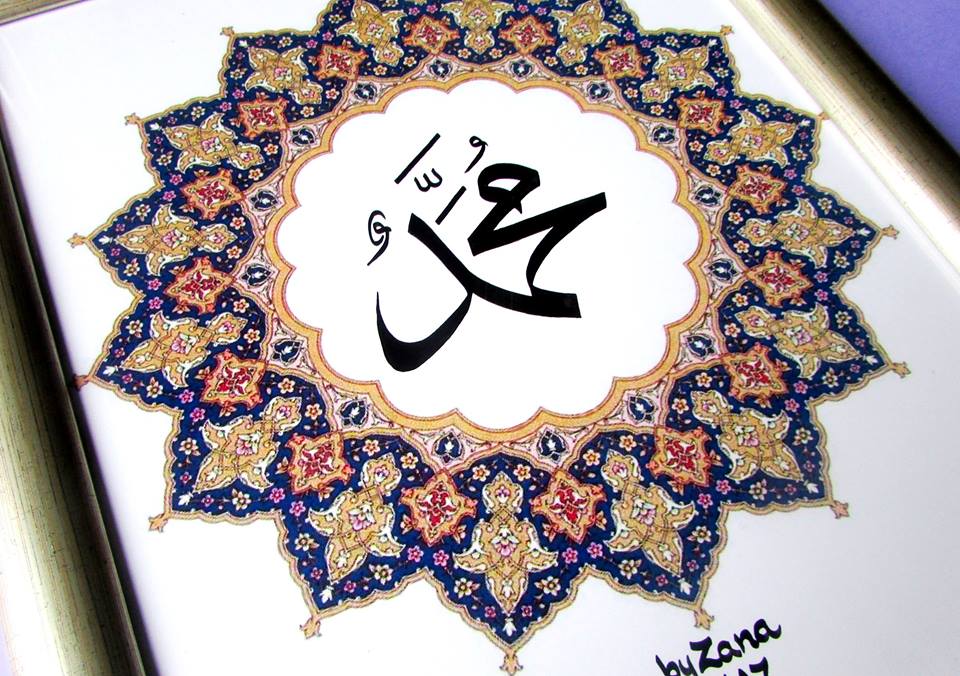 مُحَمَّدٌ
by Zana